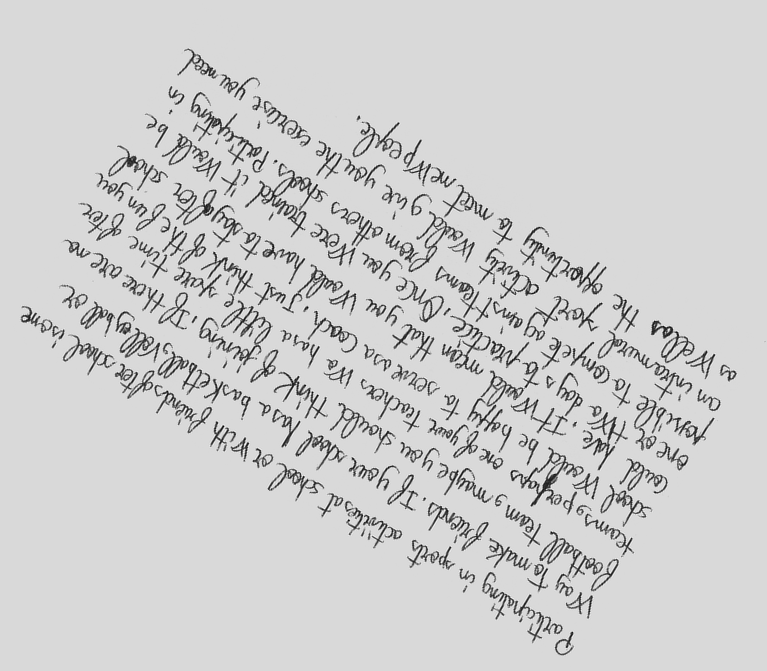 Participating in sports activities at school or With friends after school is one
Way to make friends. If your school has a basketball, volleyball or
football team, maybe you should think of joining. If there are no
teams, perhaps one of your teachers Who has a little spare time after
school Would be happy to serve as a Coach. Just think of the fun you
could have. It Would mean that you Would have to say after school
one or tWo days to practice. Once you Were trained it Would be
possible to compete against teams from others schools. Participating in
an intramural sport activity Would give you the exercise you need
as Well as the opportunity to meet neW people.